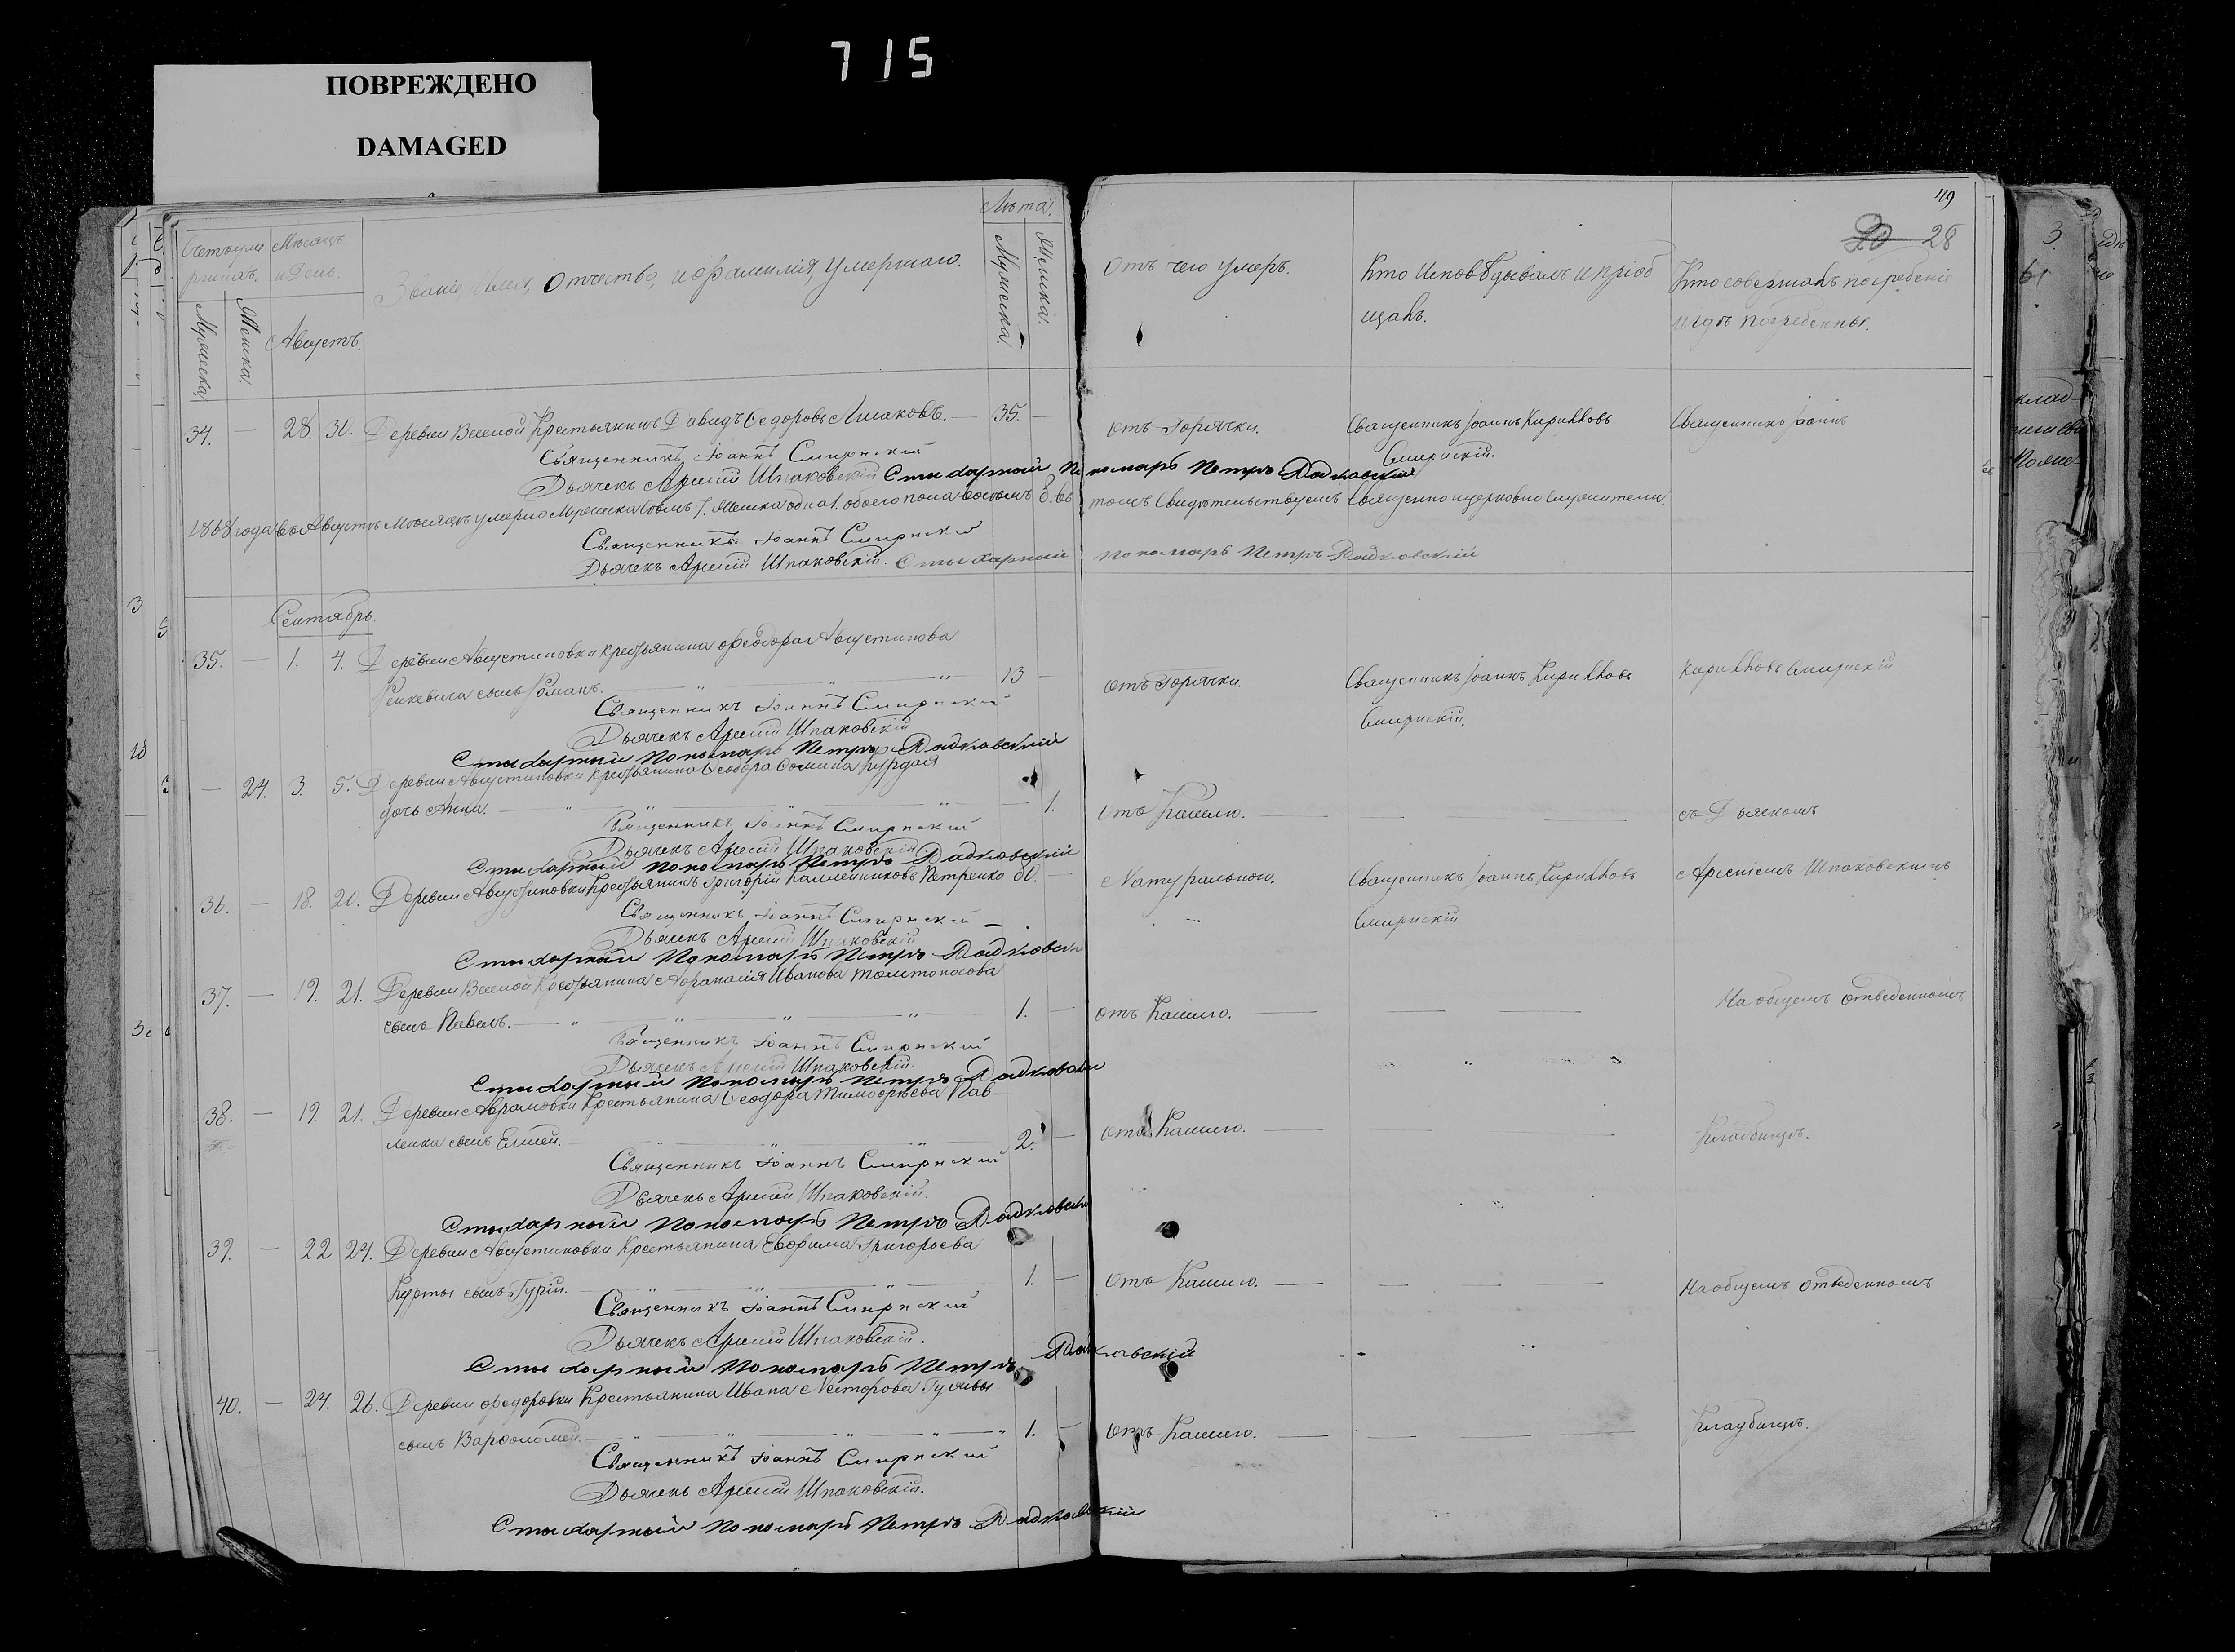 715
ПОВРЕЖДЕНО
DAMAGED
49
20 28
Счетъ уме
ршихъ.
Мужеска.
Женска.
Мѣсяцъ
и День.
Августъ.
Званіе, Имя, Отчество, и фамилія, умершаго.
Лѣта.
Мужеска.
Женска.
Отъ чего умеръ.
Кто Исповѣдывалъ и пріоб
щалъ.
Кто совершалъ погребеніе
и гдѣ погребенны.
34. — 28. 30. Деревни Веселой Крестьянинъ Давидъ Ѳедоровъ — 35. — Отъ Горячки. Священникъ Іоаннъ Кирилловъ Священникъ Іоаннъ
Смирнскій.
Священникъ Іоаннъ Смирнскій
Дьячекъ Арсеній Шпаковскій Стихарный Пономарь Петръ Радковскій
1868 года въ Августѣ Мѣсяцѣ умерло Мужеска семь 7. Женска одна 1. обоего пола восемь 8. въ томъ Свидѣтельствуемъ Священно церковно служители.
Священникъ Іоаннъ Смирнскій
Дьячекъ Арсеній Шпаковскій. Стихарный пономарь Петръ Радковскій
Сентябрь.
35. — 1. 4. Деревни Августиновки Крестьянина Феодора Августинова
сынъ Романъ. 13 — Отъ Горячки. Священникъ Іоаннъ Кирилловъ Кирилловъ Смирнскій
Смирнскій.
Священникъ Іоаннъ Смирнскій
Дьячекъ Арсеній Шпаковскій
Стихарный Пономарь Петръ Радковскій
— 24. 3. 5. Деревни Августиновки Крестьянина Ѳеодора Ѳомина
дочь Анна. — 1. Отъ Кашлю. — съ Дьячкомъ
Священникъ Іоаннъ Смирнскій
Дьячекъ Арсеній Шпаковскій
Стихарный Пономарь Петръ Радковскій
36. — 18. 20. Деревни Августиновки Крестьянинъ Григорій Петренко 80. — Натурального. Священникъ Іоаннъ Кирилловъ Арсеніемъ Шпаковскимъ
Смирнскій
Священникъ Іоаннъ Смирнскій
Дьячекъ Арсеній Шпаковскій
Стихарный Пономарь Петръ Радковскій
37. — 19. 21. Деревни Веселой Крестьянина Афанасія Иванова Толстоносова
сынъ Павелъ. 1. — Отъ Кашлю. — На общемъ отведенномъ
Священникъ Іоаннъ Смирнскій
Дьячекъ Арсеній Шпаковскій.
Стихарный Пономарь Петръ Радковскій
38. — 19. 21. Деревни Абрамовки Крестьянина Ѳеодора Тимофѣева Пав-
ленка сынъ Елисей. 2. — Отъ Кашлю. — Кладбищѣ.
Священникъ Іоаннъ Смирнскій
Дьячекъ Арсеній Шпаковскій.
Стихарный Пономарь Петръ Радковскій
39. — 22 24. Деревни Августиновки Крестьянина Евфима Григорьева
сынъ Гурій. 1. — Отъ Кашлю. — На общемъ отведенномъ
Священникъ Іоаннъ Смирнскій
Дьячекъ Арсеній Шпаковскій.
Стихарный Пономарь Петръ Радковскій
40. — 24. 26. Деревни Федоровки Крестьянина Ивана Несторова Гулявы
сынъ Варфоломей. 1. — Отъ Кашлю. — Кладбищѣ.
Священникъ Іоаннъ Смирнскій
Дьячекъ Арсеній Шпаковскій.
Стихарный Пономарь Петръ Радковскій